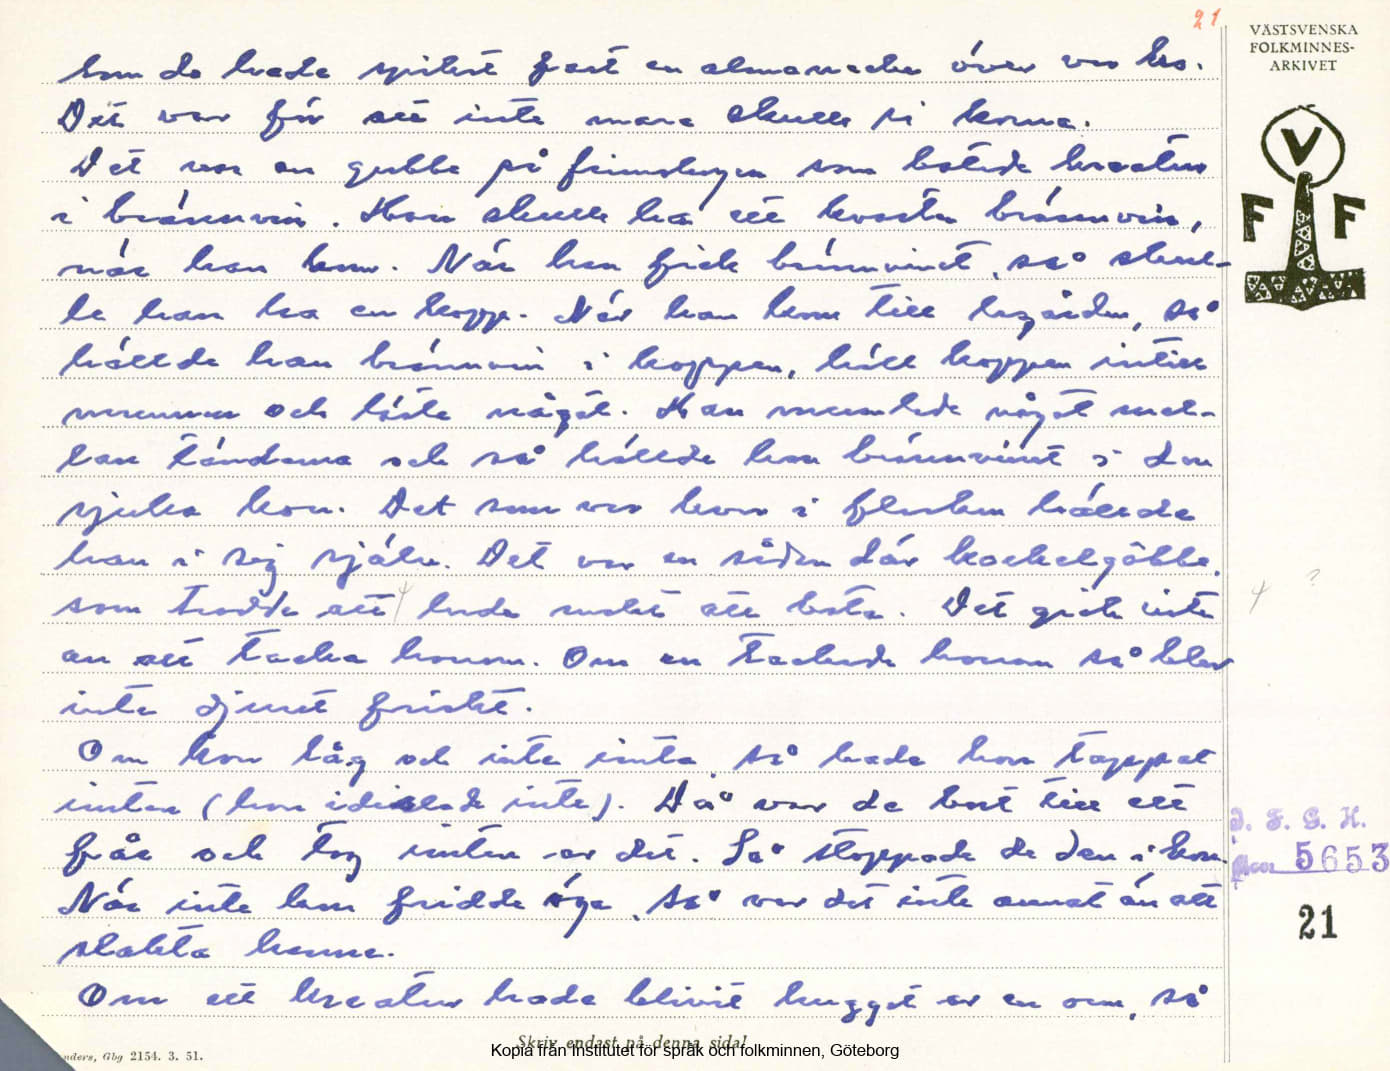 21
VÄSTSVENSKA
FOLKMINNES-
ARKIVET
V
F F
som de hade spikat fast en almanacka över var ko.
Det var för att inte mara skulle få komma.
Det var en gubbe på som botade kreatur
i brännvin. Han skulle ha ett kvarter brännvin,
när han kom. När han fick brännvinet, så skul-
le han ha en kopp. När han kom till lagården, så
hällde han brännvin i koppen, höll koppen intill
munnen och läste något. Han mumlade något mel-
lan tänderna och så hällde han brännvinet i den
sjuka kon. Det som var kvar i flaskan hällde
han i sig själv. Det var en sådan där
som trodde att hade makt att bota. Det gick inte
an att tacka honom. Om en tackade honom så blev
inte djuret friskt.
Om kon låg och inte, så hade hon tappat
(hon idislade inte). Då var de bort till ett
får och tog av det. Så stoppade de den i kon.
När inte kon, så var det inte annat än att
slakta henne.
Om ett kreatur hade blivit hugget av en orm, så
I. F. G. H.
5653
21
Skriv endast på denna sida!
Kopia från Institutet för språk och folkminnen, Göteborg
nders, Gbg 2154. 3. 51.